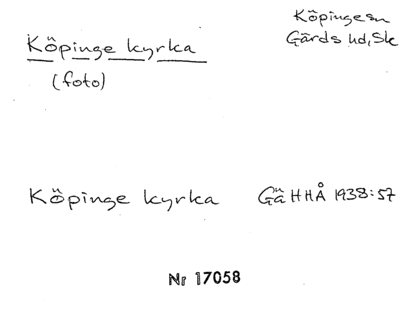 Köpinge kyrka
(foto)
Köpinge sn
Gärds hd, Sk
Köpinge kyrka GäHHÅ 1938:57
Nr 17058